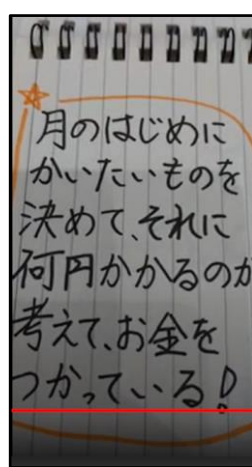 月のはじめに
かいたいものを
決めて、それに
何円かかるのか
考えて、お金を
つかっている!